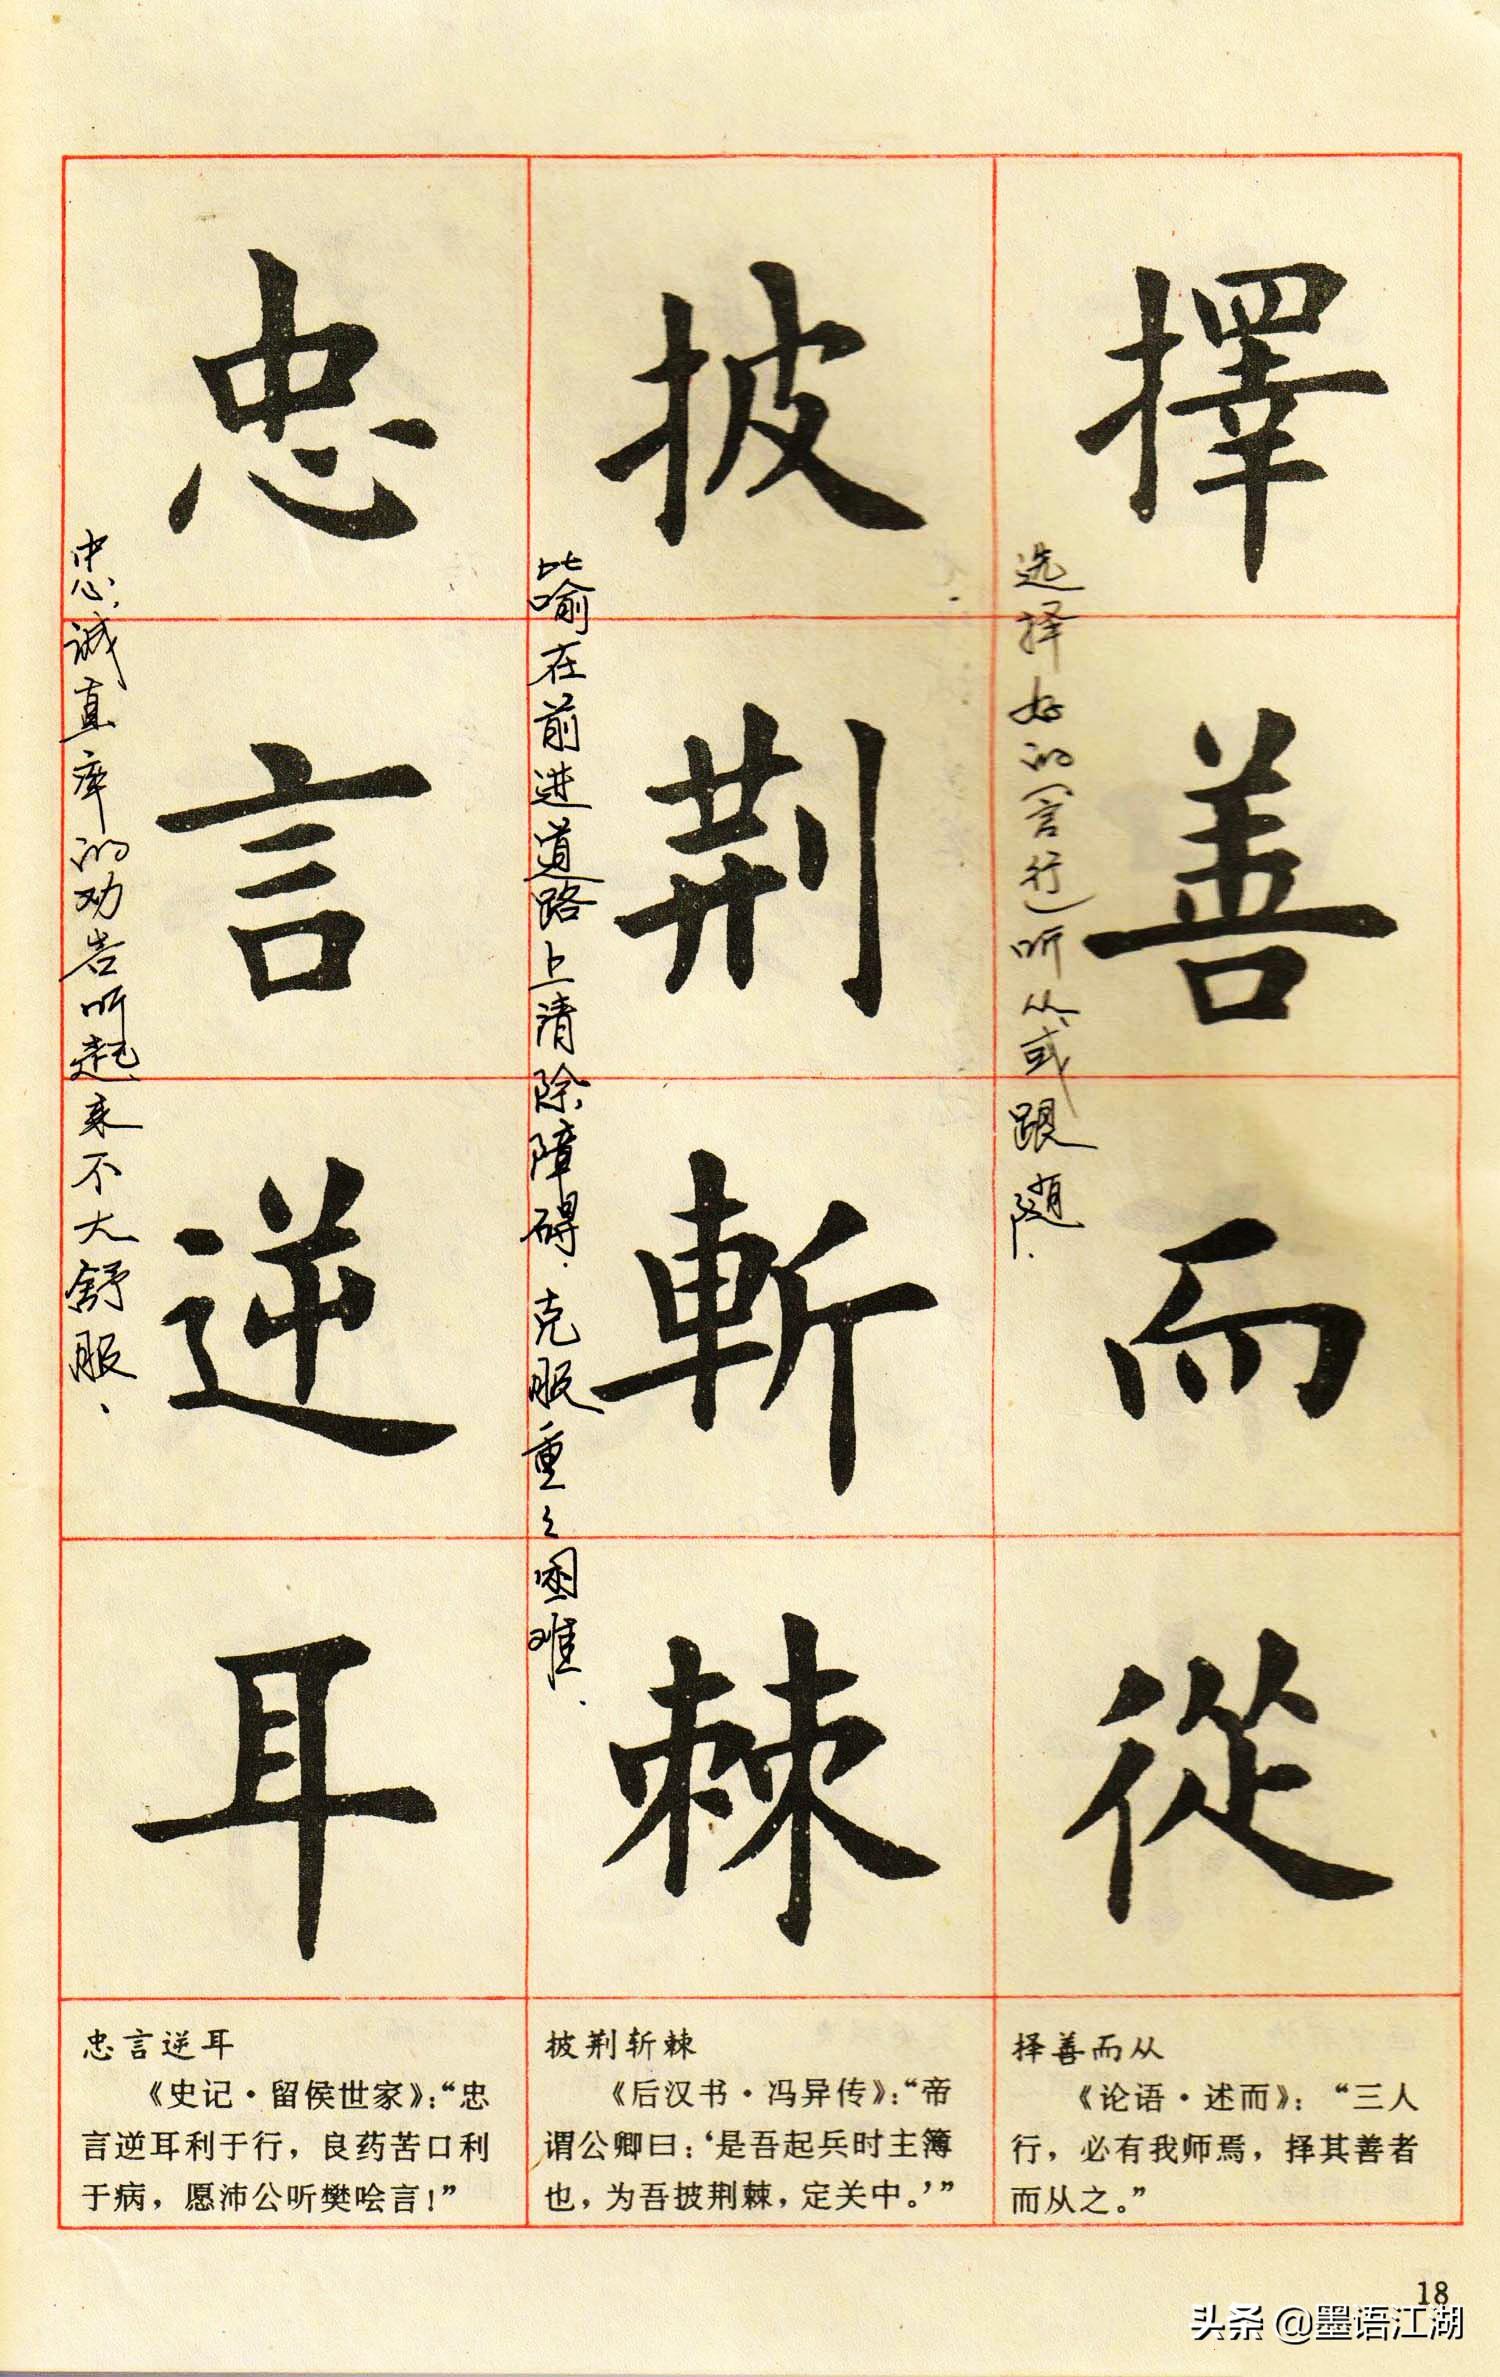 擇善而從
选择好的(言行)听从或跟随.
披荆斬棘
比喻在前进道路上清除障碍.克服重重困难.
忠言逆耳
忠诚直率的劝告听起来不大舒服.
择善而从
《论语·述而》：“三人
行，必有我师焉，择其善者
而从之。”
披荆斩棘
《后汉书·冯异传》：“帝
谓公卿曰：‘是吾起兵时主簿
也，为吾披荆棘，定关中。’”
忠言逆耳
《史记·留侯世家》：“忠
言逆耳利于行，良药苦口利
于病，愿沛公听樊哙言！”
18
头条 @墨语江湖